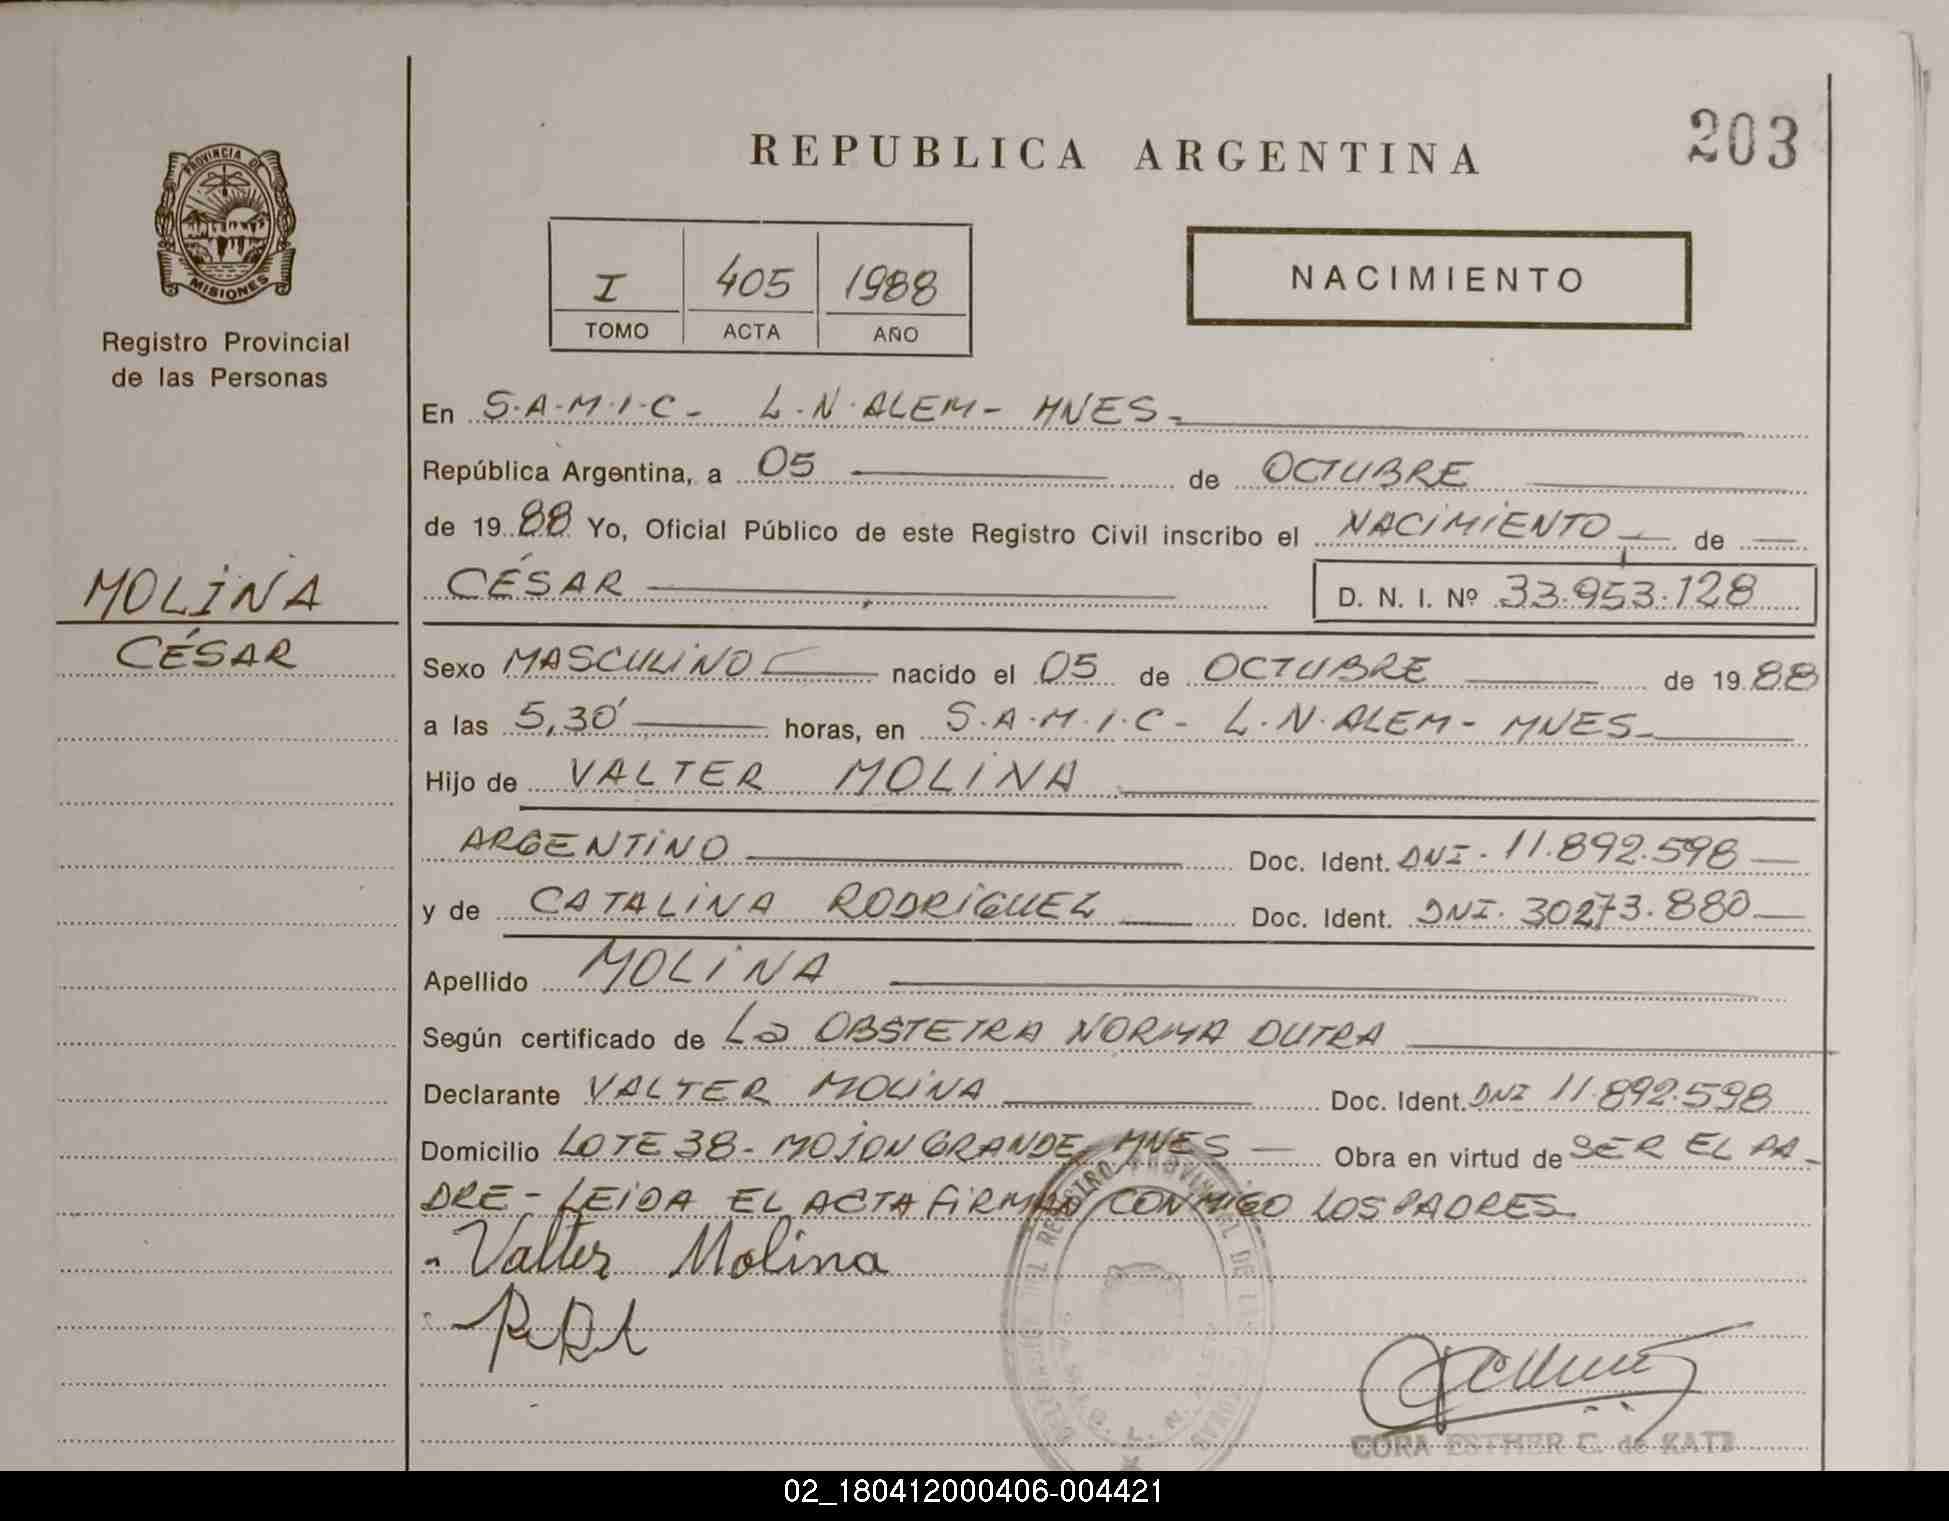 203
REPUBLICA ARGENTINA
PROVINCIA DE
MISIONES
Registro Provincial
de las Personas
I 405 1988
TOMO ACTA AÑO
NACIMIENTO
En S.A.M.I.C- L.N.ALEM- MNES-
República Argentina, a 05 de OCTUBRE
de 1988 Yo, Oficial Público de este Registro Civil inscribo el NACIMIENTO de
CÉSAR D. N. I. Nº 33.953.128
MOLINA
CÉSAR
Sexo MASCULINO nacido el 05 de OCTUBRE de 1988
a las 5,30' horas, en S.A.M.I.C- L.N.ALEM- MNES-
Hijo de VALTER MOLINA
ARGENTINO Doc. Ident. DNI. 11.892.598
y de CATALINA RODRIGUEZ Doc. Ident. DNI. 30273.880
Apellido MOLINA
Según certificado de La OBSTETRA NORMA DUTRA
Declarante VALTER MOLINA Doc. Ident. DNI 11.892.598
Domicilio LOTE 38- MOJON GRANDE MNES Obra en virtud de SER EL PA-
DRE- LEIDA EL ACTA FIRMAN CONMIGO LOS PADRES
Valter Molina
REGISTRO PROVINCIAL DE LAS
CORA ESTHER C. de KATZ
02_180412000406-004421